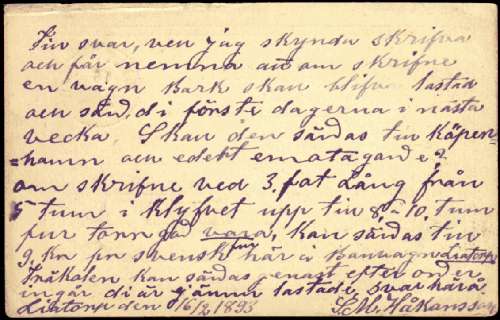 Till svar, vell jag skynda skrifva
och får nemna att om skrifne
en vagn Bark skall blifva lastad
och sänd, di förste dagerna i nästa
vecka. Skall den sändas till Köpen-
=hamn och edert emotagande?
om skrifne ved 3. fat Lång från
5 tum i Klyfvet upp till 8-10. tum
pur tann gd vara, kan sändas till
9. Kr pr svensk fmr här å Banvagn Liatorp
Träkolen kan sändas genast efter order
ingår di är jämnt lastade, svar härå
Liatorp den 16/2 1893 S.M. Håkansson